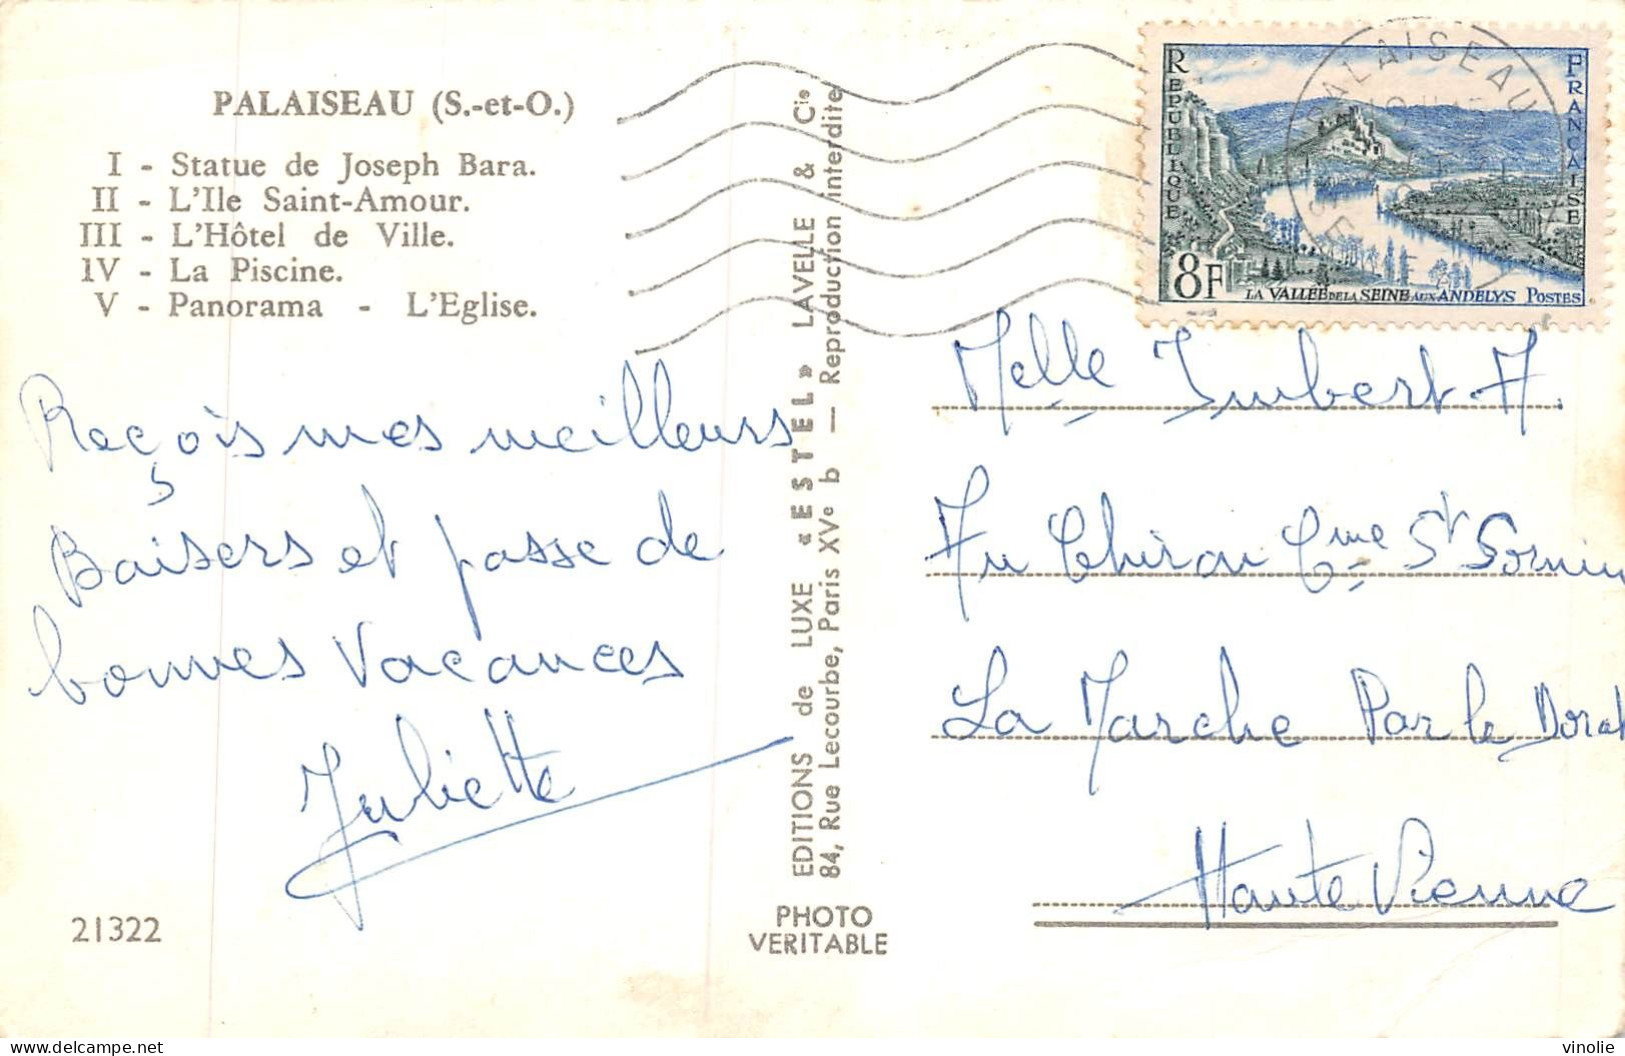 PALAISEAU (S.-et-O.)
I - Statue de Joseph Bara.
II - L'Ile Saint-Amour.
III - L'Hôtel de Ville.
IV - La Piscine.
V - Panorama - L'Eglise.
Reçois mes meilleurs
Baisers et passe de
bonnes Vacances
Juliette
21322
EDITIONS de LUXE « ESTEL » LAVELLE & Cie
84, Rue Lecourbe, Paris XVe b — Reproduction interdite
PHOTO
VERITABLE
REPUBLIQUE
FRANÇAISE
8F
LA VALLÉE DE LA SEINE AUX ANDELYS POSTES
PALAISEAU
SEINE
Melle Imbert A.
Au Chiron Cme St Sornin
La Marche Par le Dorat
Haute Vienne
delcampe.net
vinolie